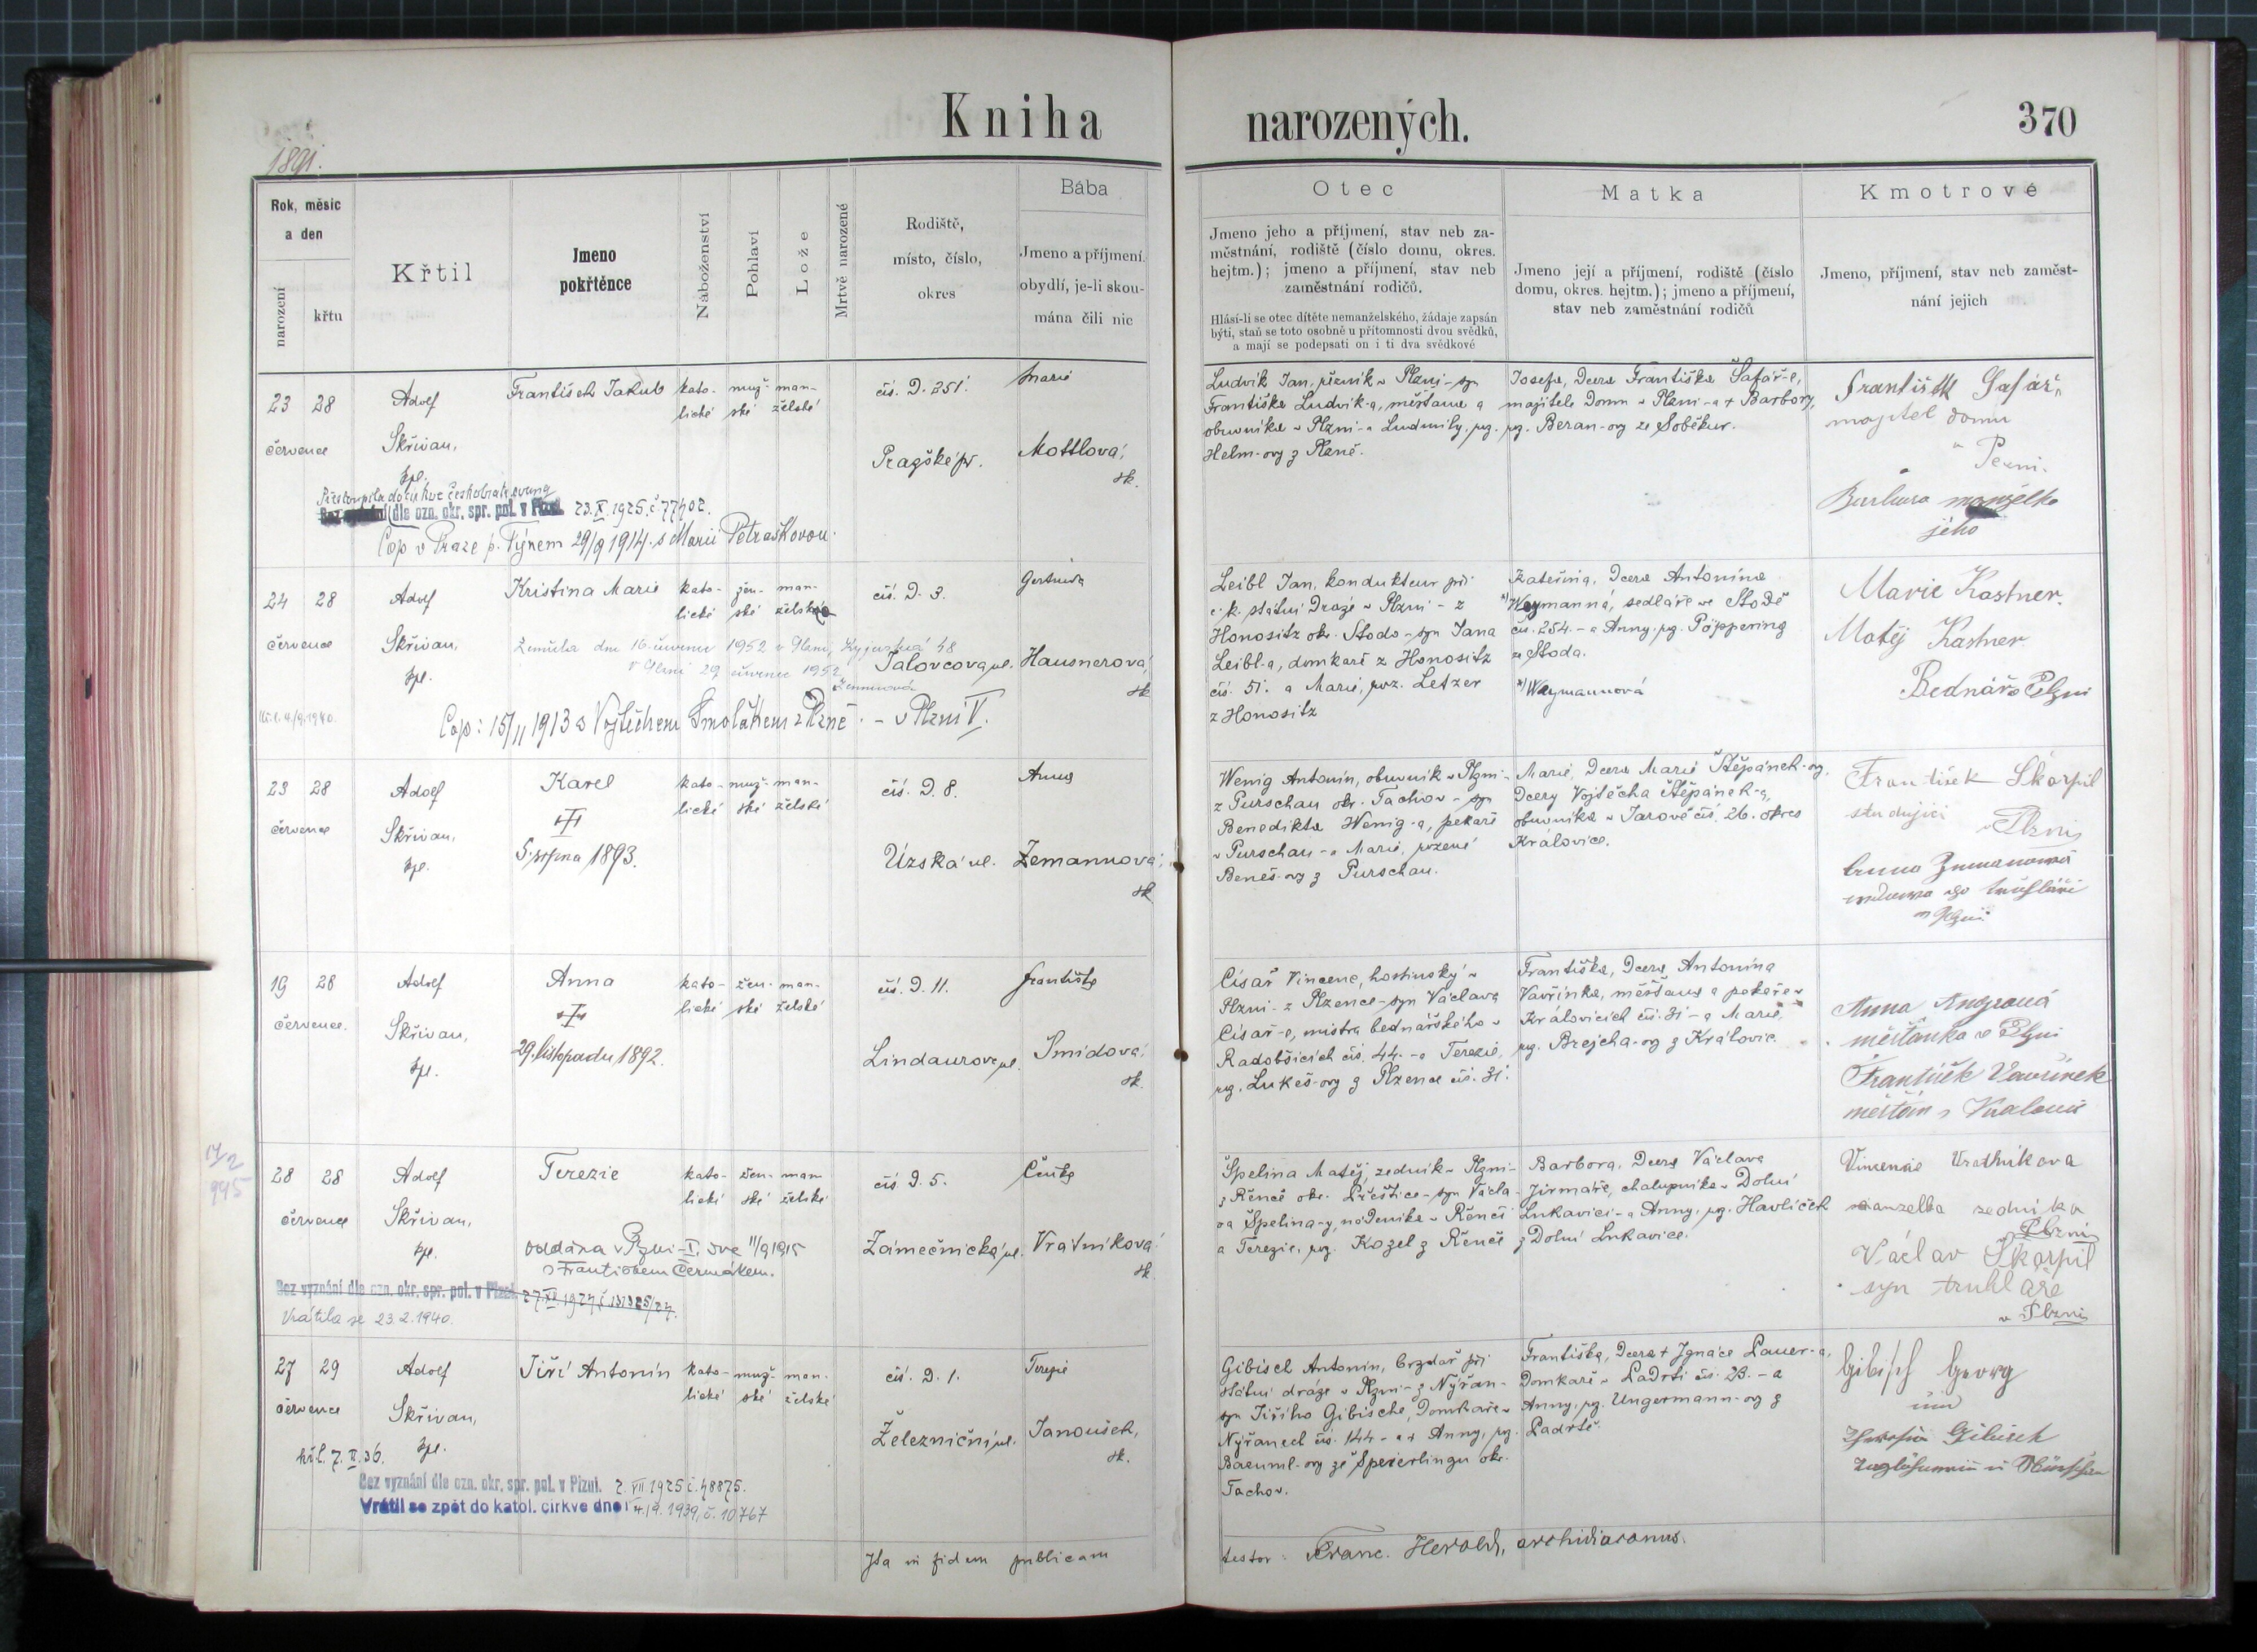 Kniha narozených.
370
1891.
Rok, měsíc
a den
narození
křtu
Křtil
Jmeno
pokřtěnce
Náboženství
Pohlaví
Lože
Mrtvě narozené
Rodiště,
místo, číslo,
okres
Bába
Jmeno a příjmení.
obydlí, je-li skou-
mána čili nic
Otec
Jmeno jeho a příjmení, stav neb za-
městnání, rodiště (číslo domu, okres.
hejtm.); jmeno a příjmení, stav neb
zaměstnání rodičů.
Hlásí-li se otec dítěte nemanželského, žádaje zapsán
býti, staň se toto osobně u přítomnosti dvou svědků,
a mají se podepsati on i ti dva svědkové
Matka
Jmeno její a příjmení, rodiště (číslo
domu, okres. hejtm.); jmeno a příjmení,
stav neb zaměstnání rodičů
Kmotrové
Jmeno, příjmení, stav neb zaměst-
nání jejich
23 28
července
Adolf
Skřivan,
kpl.
František Jakub
kato-
lické
muž-
ské
man-
želské
čís. D. 251.
Pragské př.
Marie
Mottlová,
zk.
Přestoupila do církve českobratr. evang
Bez vyznání dle ozn. okr. spr. pol. v Plzni. 23.X.1925, č. 77402.
Cop. v Praze p. Týnem 29/9 1914. s Marií Petraškovou.
Ludvík Jan, řezník v Plzni - syn
Františka Ludvík-a, měšťana a
obuvníka v Plzni - a Ludmily, roz.
Helm-ovy z Plzně.
Josefa, dcera Františka Šafář-e,
majitele domu v Plzni - a + Barbory,
roz. Beran-ovy ze Soběkur.
František Šafář,
majitel domu
v Plzni.
Barbara manželka
jeho
24 28
července
Adolf
Skřivan,
kpl.
Kristina Marie
kato-
lické
žen-
ské
man-
želské
čís. D. 3.
Jalovcova ul.
Gertruda
Hausnerová,
zk
Zemřela dne 16. července 1952 v Plzni, Kyjevská 48
V Plzni 29 července 1952
Cop: 15/11 1913 s Vojtěchem Smolákem z Plzně. - v Plzni V.
Leibl Jan, kondukteur při
c. k. státní dráze v Plzni - z
Honositz okr. Stodo - syn Jana
Leibl-a, domkaře z Honositz
čís. 51. a Marie, roz. Letzer
z Honositz
Kateřina, dcera Antonína
Waymanna, sedláře ve Stodě
čís. 254. - a Anny, roz. Pöppering
ze Stoda.
*) Waymannová
Marie Kastner.
Matěj Kastner
Bednář v Plzni
23 28
července
Adolf
Skřivan,
kpl.
Karel
5. srpna 1893.
kato-
lické
muž-
ské
man-
želské
čís. D. 8.
Úzská ul.
Anna
Zemannova,
zk
Wenig Antonín, obuvník v Plzni -
z Purschau okr. Tachov - syn
Benedikta Wenig-a, pekaře
v Purschau - a Marie, rozené
Beneš-ovy z Purschau.
Marie, dcera Marie Štěpánek-ovy,
dcery Vojtěcha Štěpánek-a,
obuvníka v Jarově čís. 26. okres
Královice.
František Škarpil
studující
v Plzni
Anna Zemanová
vdova po truhláři
v Plzni
19 28
července.
Adolf
Skřivan,
kpl.
Anna
29. listopadu 1892.
kato-
lické
žen-
ské
man-
želské
čís. D. 11.
Lindaurova ul.
Františka
Šmídová,
zk.
Císař Vincenc, hostinský v
Plzni - z Plzence - syn Václava
Císař-e, mistra bednářského v
Radobšicích čís. 44. - a Terezie,
roz. Lukeš-ovy z Plzence čís. 31.
Františka, dcera Antonína
Vavřinka, měšťana a pekaře v
Královicích čís. 31 - a Marie,
roz. Brejcha-ovy z Královic.
měšťanka v Plzni
František Vavřinek
měšťan v Kralovic
14/2
28 28
července
Adolf
Skřivan,
kpl.
Terezie
kato-
lické
žen-
ské
man
želské
čís. D. 5.
Zámečnická ul.
Čeňka
Vrátníková.
zk.
oddána v Plzni - I. dne 11/9 1915
s Františkem Čermákem.
Bez vyznání dle ozn. okr. spr. pol. v Plzni.
Vrátila se 23.2.1940.
Špelina Matěj, zedník v Plzni -
z Řenče okr. Přeštice - syn Václa-
va Špelina-y, nádeníka v Řenči
a Terezie, roz. Kozel z Řenče
Barbora, dcera Václava
Jirmáře, chalupníka v Dolní
Lukavici - a Anny, roz. Havlíček
z Dolní Lukavice.
Vincencie Vrátníkova
manzelka zedníka
v Plzni
Václav Škarpil
syn truhláře
v Plzni
27 29
července
Adolf
Skřivan,
kpl.
Jiří Antonín
kato-
lické
muž-
ské
man-
želské
čís. D. 1.
Železniční ul.
Terezie
Janoušek,
zk.
Bez vyznání dle ozn. okr. spr. pol. v Plzni. 2. VII. 1925 č. 48875.
Vrátil se zpět do katol. církve dne 4./9. 1939, č. 10767
Gibisch Antonín, brzdař při
státní dráze v Plzni - z Nýřan -
syn Jiřího Gibische, domkaře v
Nýřanech čís. 144 - a + Anny, roz.
Baeuml-ovy ze Speierlingu okr.
Tachov.
Františka, dcera + Ignáce Lauer-a,
domkaře v Padrti čís. 23. - a
Anny, roz. Ungermann-ovy z
Padrtě.
Gibisch Georg
und
Theresia Gibisch
Ita in fidem publicam
testor: Franc. Herold, archidiaconus.